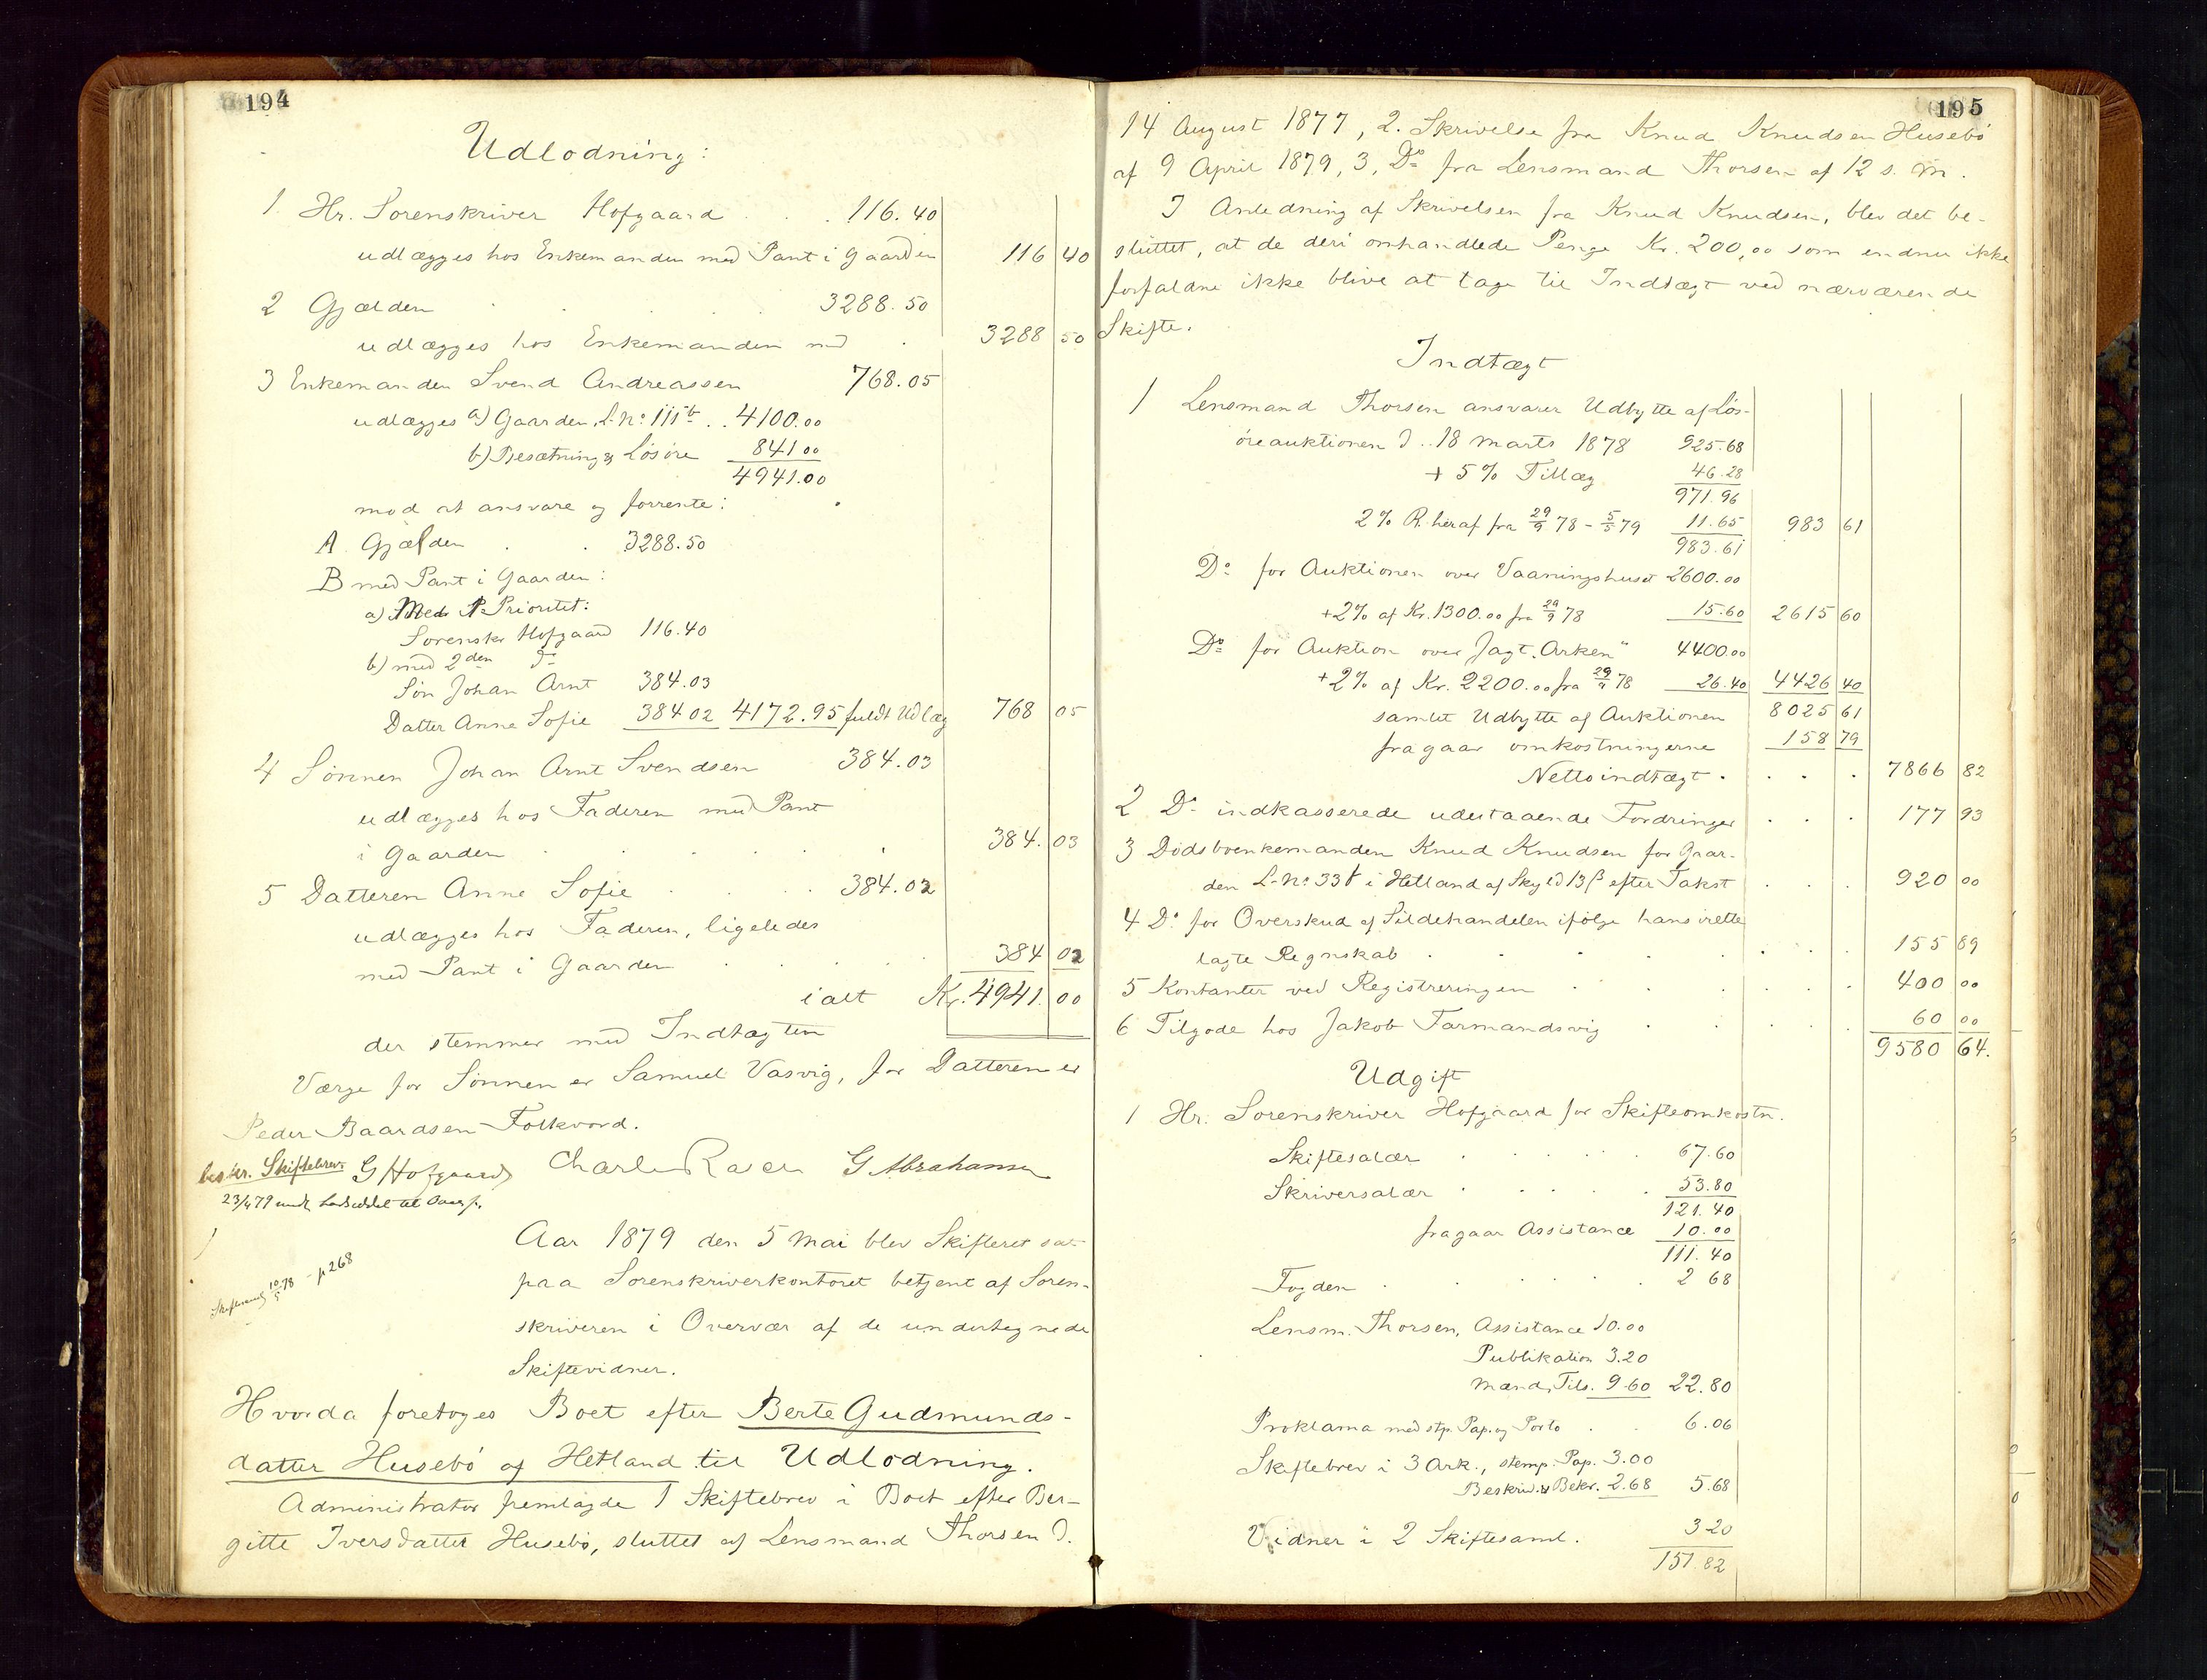 194
Udlodning:
1. Hr. Sorenskriver Hofgaard . . . 116.40
udlægges hos Enkemanden med Pant i Gaarden 116 40
2 Gjælden . . . 3288.50
udlægges hos Enkemanden md . 3288 50
3 Enkemanden Svend Andreassen 768.05
udlægges a) Gaarden, L-No: 111b . . 4100.00
b) Besætning & Løsøre 841 00
4941.00
mod at ansvare og forrente:
A. Gjælden . . 3288.50
B med Pant i Gaarden:
a) Med 1. Prioritet:
Sorenskr Hofgaard 116.40
b) med 2den do
Søn Johan Arnt 384.03
Datter Anne Sofie 384 02 4172.95 fuldt Udlæg 768 05
4 Sønnen Johan Arnt Svendsen 384.03
udlægges hos Faderen med Pant
i Gaarden . . . . . 384. 03
5 Datteren Anne Sofie . . . . 384.02
udlægges hos Faderen, ligeledes
med Pant i Gaarden . . . . 384 02
ialt Kr. 4941. 00
der stemmer med Indtægten
Værge for Sønnen er Samuel Vasvig, for Datteren er
Peder Baardsen Folkvord.
beskr. Skiftebrev G Hofgaard Charles Raven G Abrahamsen
23/4 79
Skiftesaml 10/5 78 - p 268
Aar 1879 den 5 Mai blev Skifteret sat
paa Sorenskriverkontoret betjent af Soren-
skriveren i Overvær af de undertegnede
Skiftevidner.
Hvorda foretoges Boet efter Berte Gudmunds-
datter Husebø af Hetland til Udlodning.
Administrator fremlagde 1 Skiftebrev i Boet efter Ber-
gitte Iversdatter Husebø, sluttet af Lensmand Thorsen d.
195
14 August 1877, 2. Skrivelse fra Knud Knudsen Husebø
af 9 April 1879, 3, Do fra Lensmand Thorsen af 12 s. M.
I Anledning af Skrivelsen fra Knud Knudsen, blev det be-
sluttet, at de deri omhandlede Penge Kr. 200,00 som endnu ikke
forfaldne ikke blive at tage til Indtægt ved nærværende
Skifte.
Indtægt
1 Lensmand Thorsen ansvarer Udbytte af Løs-
øreauktionen d. 18 Marts 1878 925.68
+ 5 % Tillæg 46.28
971.96
2 % R. heraf fra 29/9 78 - 5/5 79 11.65 983 61
983.61
Do for Auktionen over Vaaningshuset 2600.00
+ 2% af Kr. 1300.00 fra 29/9 78 15.60 2615 60
Do for Auktion over Jagt „Arken" 4400.00
+ 2% af Kr. 2200.00 fra 29/9 78 26.40 4426 40
samlet Udbytte af Auktionen 8025 61
fragaar omkostningerne 158 79
Nettoindtægt . . . . 7866 82
2 Do indkasserede udestaaende Fordringer . . . 177 93
3 Dødsboenkemanden Knud Knudsen for Gaar-
den L-No: 33 b i Hetland af Skyld 13 ß efter Takst . . . 920 00
4 Do for Overskud af Sildehandelen ifølge hans irette
lagte Regnskab . . . . . . . 155 89
5 Kontanter ved Registreringen . . . . . . 400 00
6 Tilgode hos Jakob Tarmandsvig . . . . . 60 00
9580 64.
Udgift
1 Hr. Sorenskriver Hofgaard for Skifteomkostn.
Skiftesalær . . . . . 67.60
Skriversalær . . . . 53.80
121.40
fragaar Assistance 10.00
111.40
Fogden . . . . . 2 68
Lensm. Thorsen, Assistance 10.00
Publikation 3.20
Mænd, Tils. 9.60 22.80
Proklama med stp. Pap. og Porto . . 6.06
Skiftebrev i 3 Ark., stemp. Pap. 3.00
Beskriv. & Bekr. 2.68 5.68
Vidner i 2 Skiftesaml. 3 20
151.82